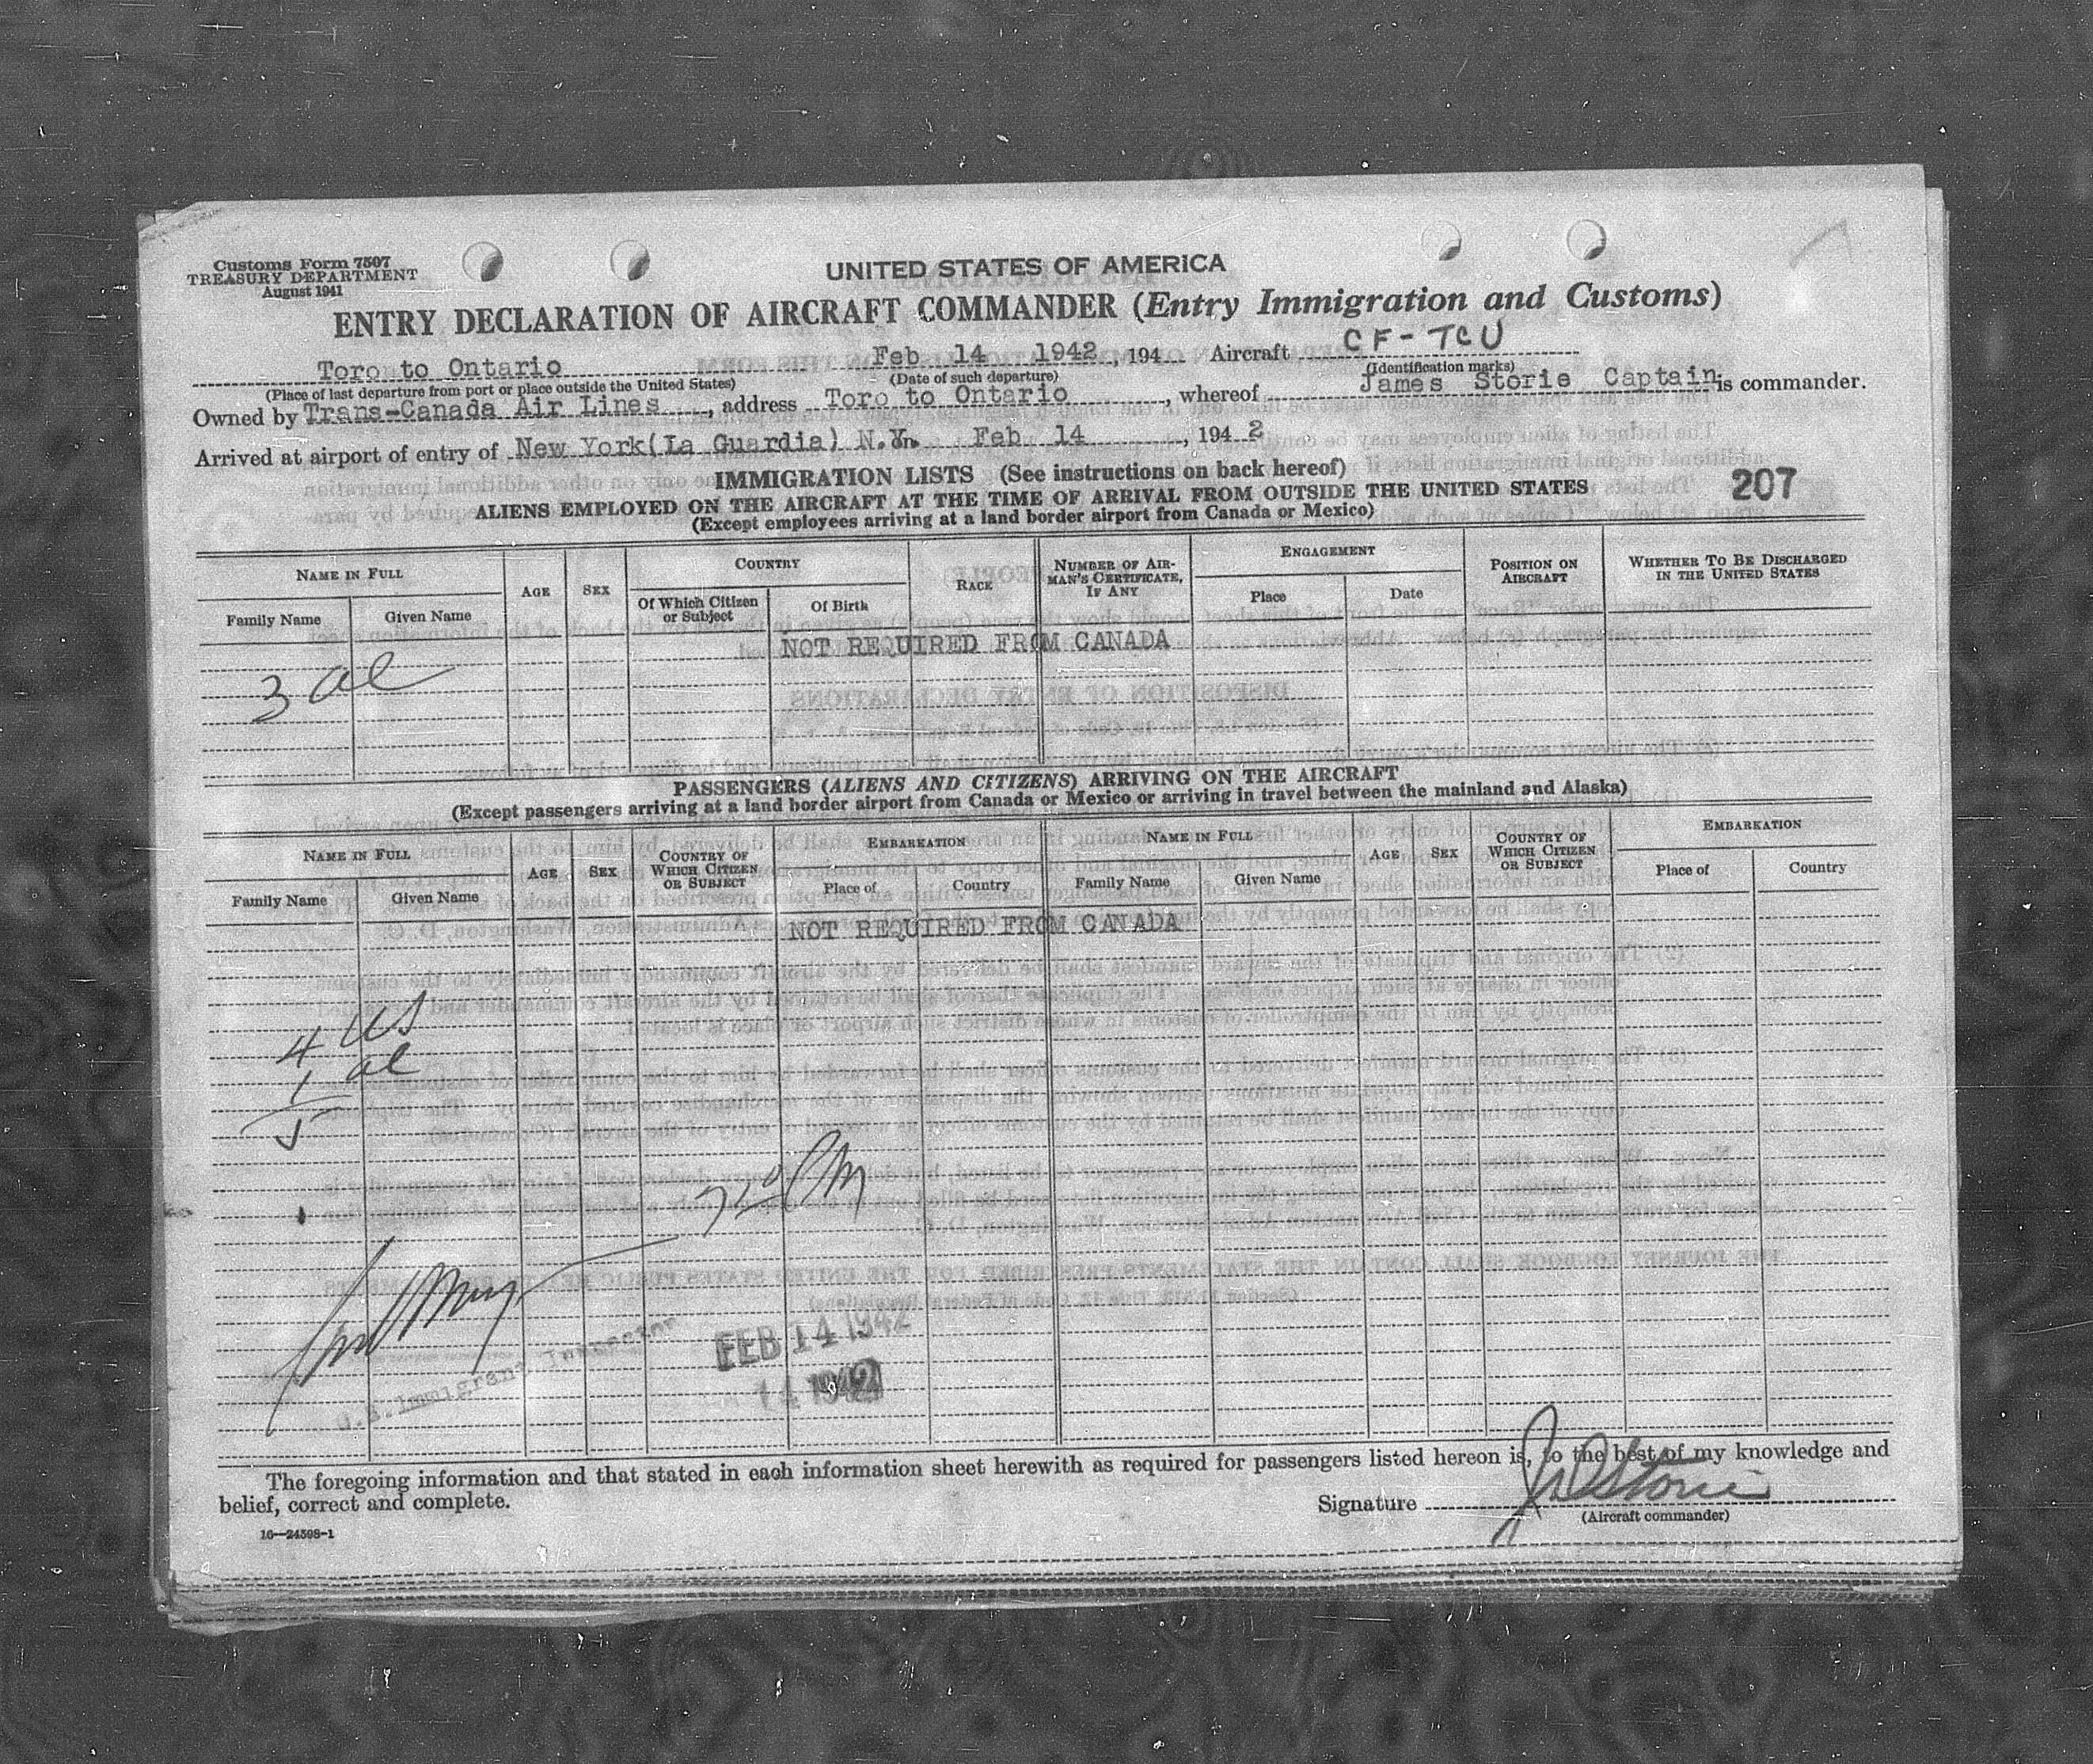 Customs Form 7507
TREASURY DEPARTMENT
August 1941
UNITED STATES OF AMERICA
ENTRY DECLARATION OF AIRCRAFT COMMANDER (Entry Immigration and Customs)
Toronto Ontario Feb 14 1942, 194 Aircraft CF-TCU
(Place of last departure from port or place outside the United States) (Date of such departure) (Identification marks)
Owned by Trans-Canada Air Lines, address Toro to Ontario, whereof James Storie Captain is commander.
Arrived at airport of entry of New York(La Guardia) N.Y. on Feb 14, 1942
IMMIGRATION LISTS (See instructions on back hereof)
207
ALIENS EMPLOYED ON THE AIRCRAFT AT THE TIME OF ARRIVAL FROM OUTSIDE THE UNITED STATES
(Except employees arriving at a land border airport from Canada or Mexico)
NAME IN FULL AGE SEX COUNTRY RACE NUMBER OF AIRMAN'S CERTIFICATE, IF ANY ENGAGEMENT POSITION ON AIRCRAFT WHETHER TO BE DISCHARGED IN THE UNITED STATES
Family Name Given Name Of Which Citizen or Subject Of Birth Place Date
NOT REQUIRED FROM CANADA
3 al
PASSENGERS (ALIENS AND CITIZENS) ARRIVING ON THE AIRCRAFT
(Except passengers arriving at a land border airport from Canada or Mexico or arriving in travel between the mainland and Alaska)
NAME IN FULL AGE SEX COUNTRY OF WHICH CITIZEN OR SUBJECT EMBARKATION NAME IN FULL AGE SEX COUNTRY OF WHICH CITIZEN OR SUBJECT EMBARKATION
Family Name Given Name Place of Country Family Name Given Name Place of Country
NOT REQUIRED FROM CANADA
4 US
1 al
5
PM
U.S. Immigrant Inspector
FEB 14 1942
14 1942
The foregoing information and that stated in each information sheet herewith as required for passengers listed hereon is, to the best of my knowledge and
belief, correct and complete.
Signature J Storie
(Aircraft commander)
16—24598-1